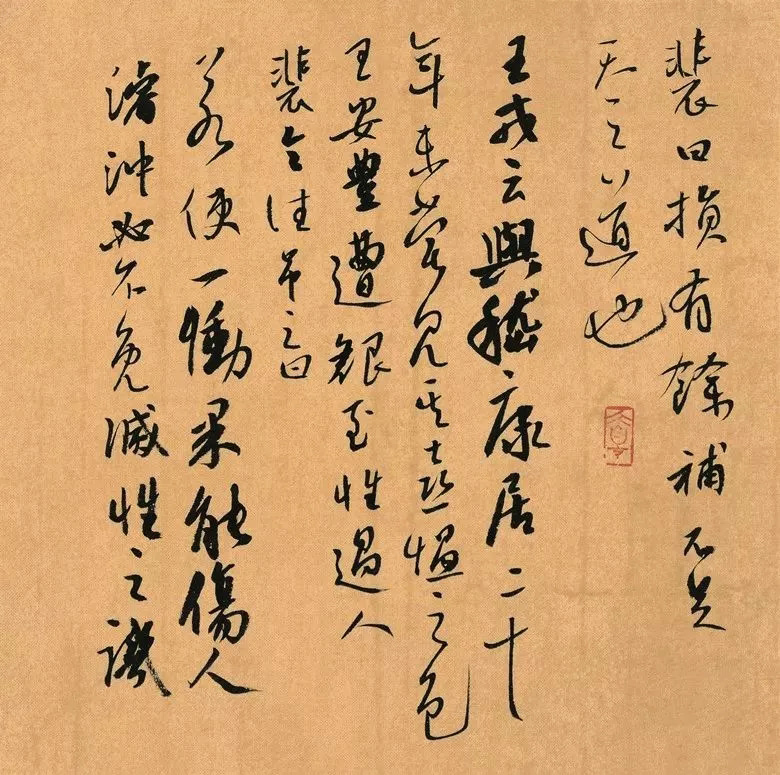 裴曰損有餘補不足
天之道也
王戎云與嵇康居二十
年未嘗見其喜慍之色
王安豐遭艱至性過人
裴令往弔之曰
若使一慟果能傷人
濬沖必不免滅性之譏